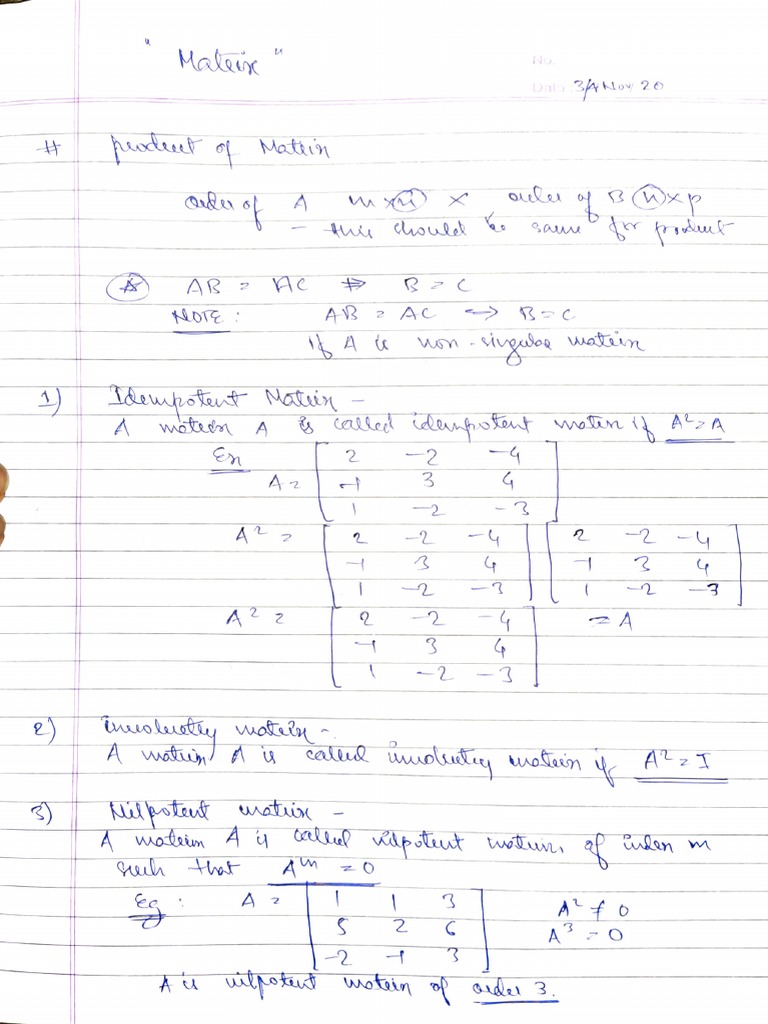 " Matrix "
No.
Date 3/4 Nov 20
# product of Matrix
order of A m×n × order of B n×p
- this should be same for product
AB = AC ⇏ B = C
NOTE: AB = AC → B = C
if A is non-singular matrix
1) Idempotent Matrix -
A matrix A is called idempotent matrix if A² = A
Ex
A = [ 2 -2 -4
-1 3 4
1 -2 -3 ]
A² = [ 2 -2 -4 ] [ 2 -2 -4 ]
-1 3 4 -1 3 4
1 -2 -3 1 -2 -3
A² = [ 2 -2 -4 ] = A
-1 3 4
1 -2 -3
2) involuntry matrix -
A matrix A is called involuntry matrix if A² = I
3) Nilpotent matrix -
A matrix A is called nilpotent matrix, of index m
such that Aᵐ = 0
Eg: A = [ 1 1 3 ] A² ≠ 0
5 2 6 A³ = 0
-2 -1 3
A is nilpotent matrix of order 3.